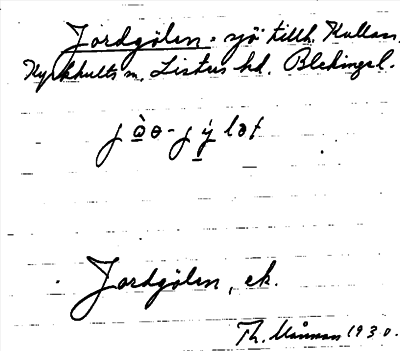 Jordgölen, sjö tillh. Kullan,
Kyrkhults sn. Listers hd. Blekinge l.

Jordgölen, ek.
Th. Månsson 1930.